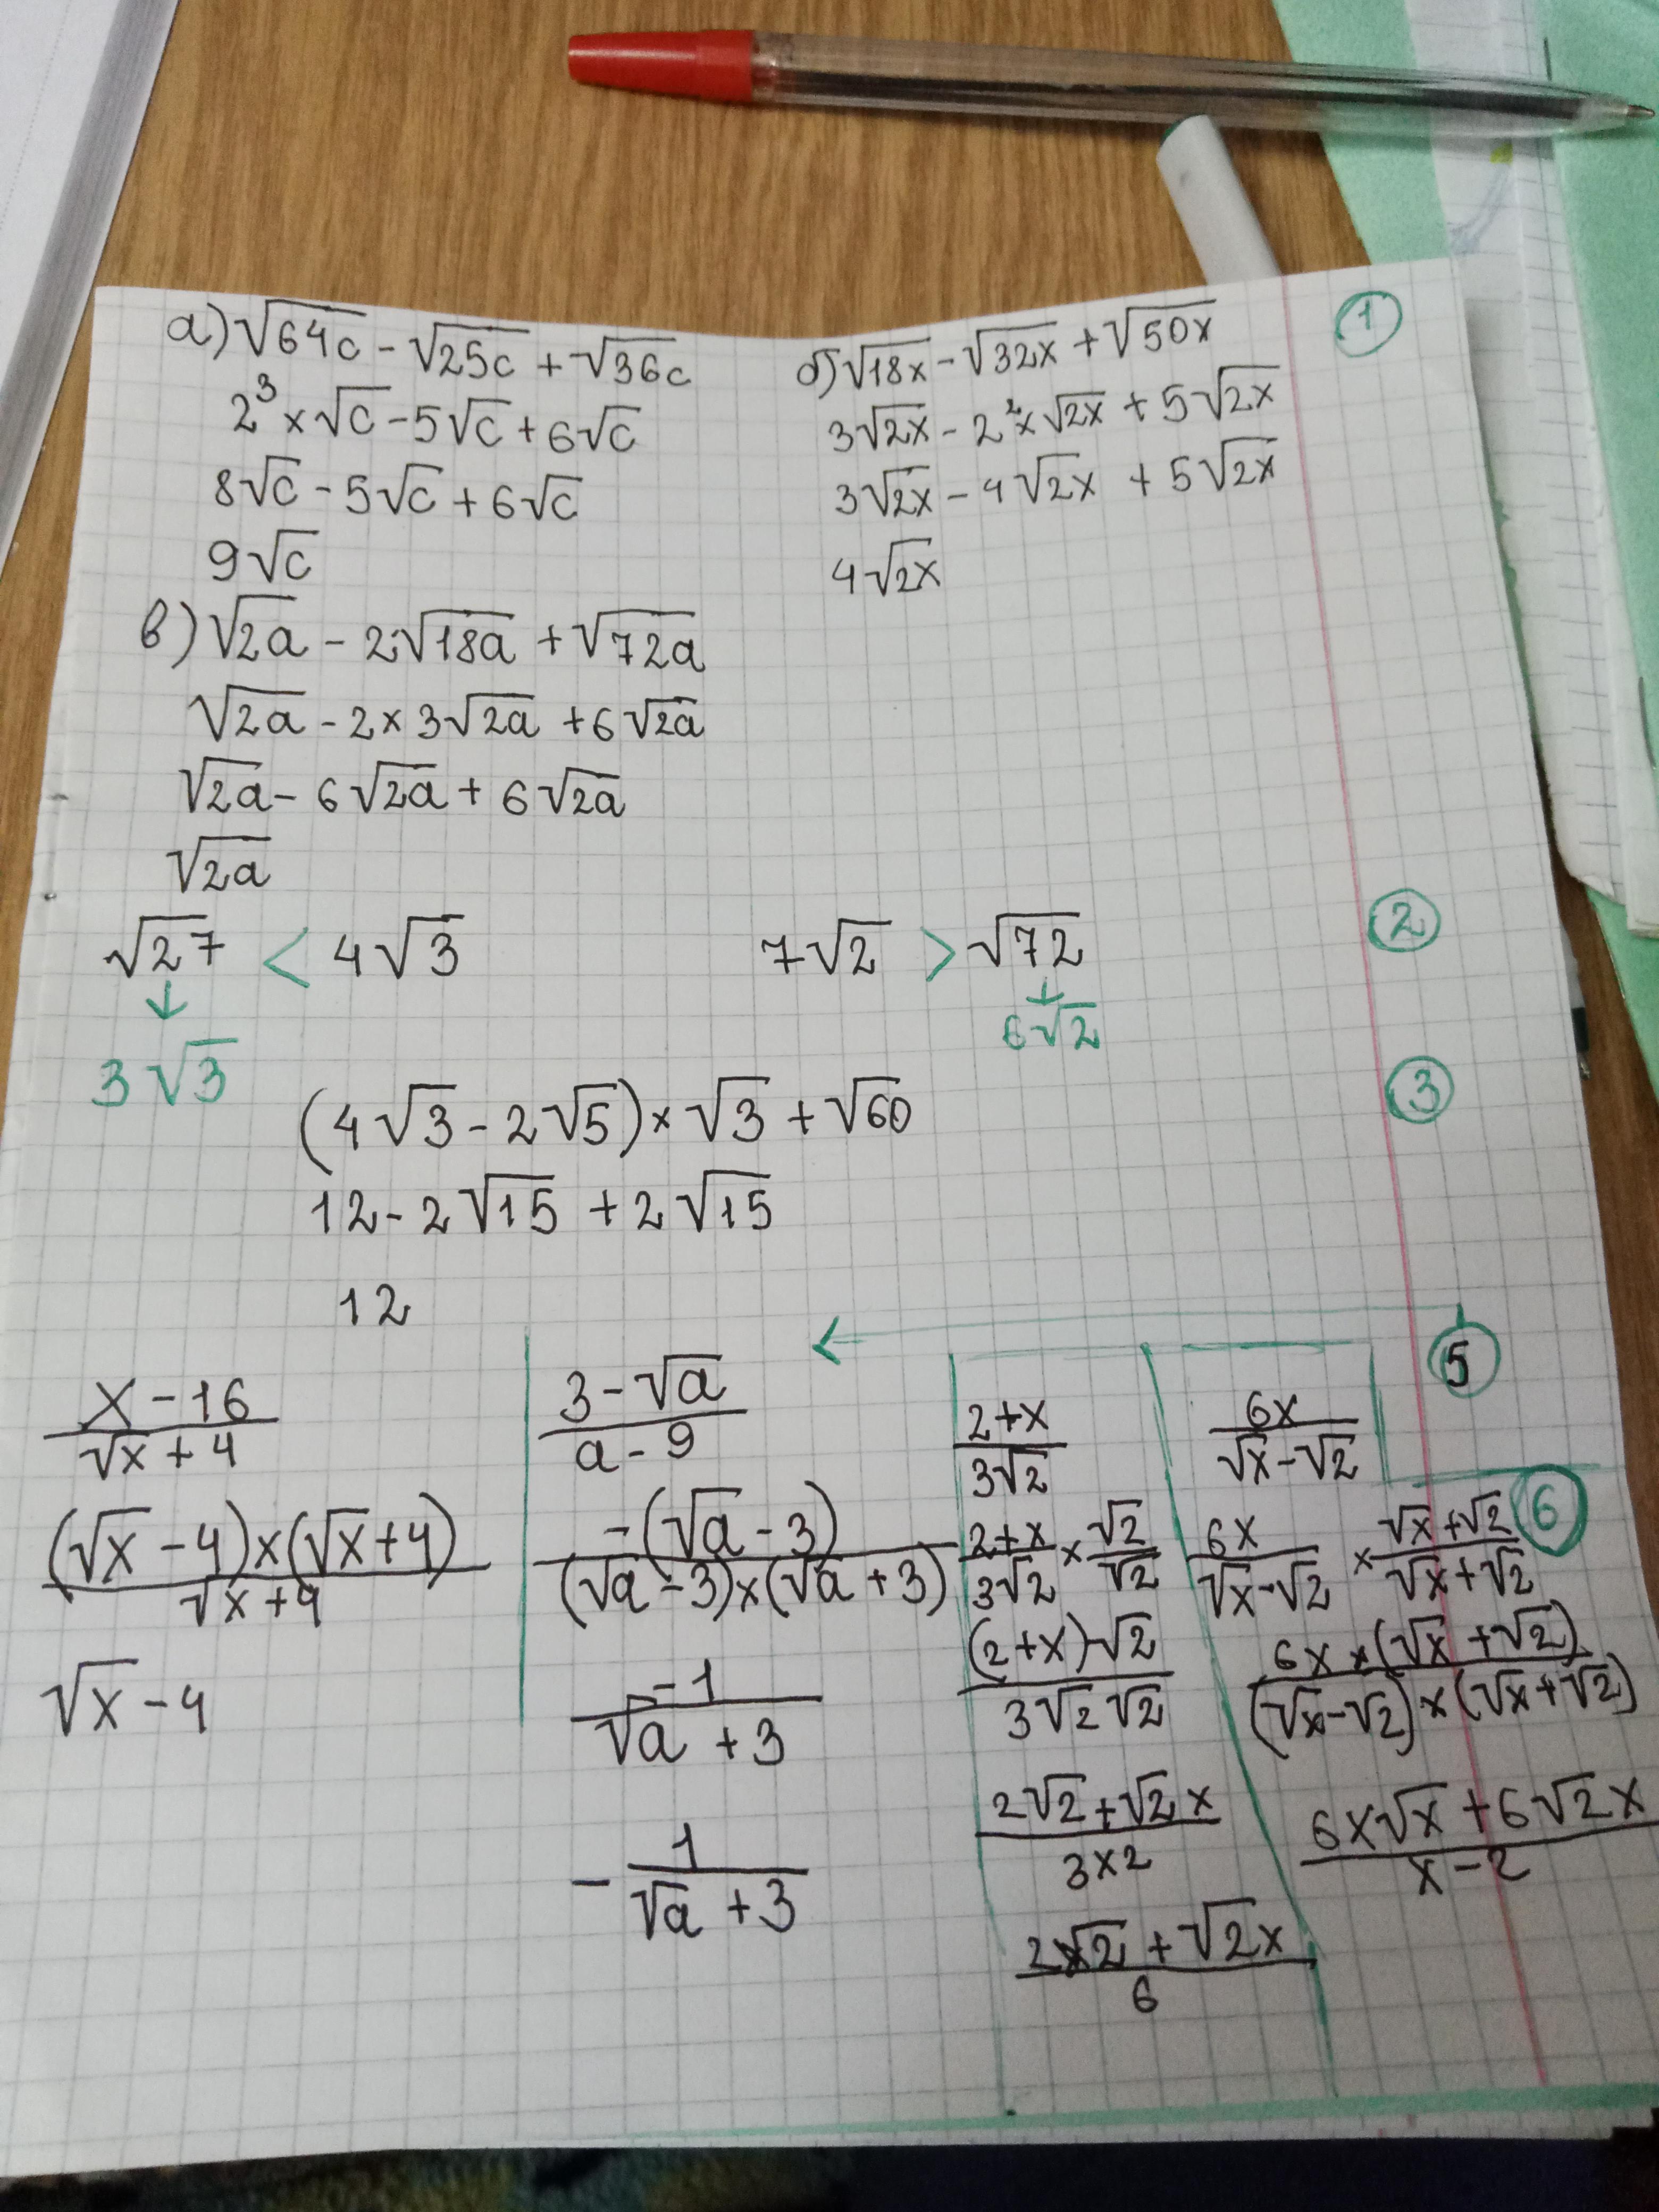 а) √64c - √25c + √36c
2³ × √c - 5√c + 6√c
8√c - 5√c + 6√c
9√c
б) √18x - √32x + √50x
3√2x - 2² × √2x + 5√2x
3√2x - 4√2x + 5√2x
4√2x
1
в) √2a - 2√18a + √72a
√2a - 2 × 3√2a + 6√2a
√2a - 6√2a + 6√2a
√2a
√27 < 4√3
↓
3√3
7√2 > √72
↓
6√2
2
(4√3 - 2√5) × √3 + √60
12 - 2√15 + 2√15
12
3
5
(x - 16)/(√x + 4)
((√x - 4) × (√x + 4))/(√x + 4)
√x - 4
(3 - √a)/(a - 9)
(-(√a - 3))/((√a - 3) × (√a + 3))
(-1)/(√a + 3)
- 1/(√a + 3)
6
(2 + x)/(3√2)
(2 + x)/(3√2) × √2/√2
((2 + x)√2)/(3√2√2)
(2√2 + √2x)/(3 × 2)
(2√2 + √2x)/6
6x/(√x - √2)
6x/(√x - √2) × (√x + √2)/(√x + √2)
(6x × (√x + √2))/((√x - √2) × (√x + √2))
(6x√x + 6√2x)/(x - 2)